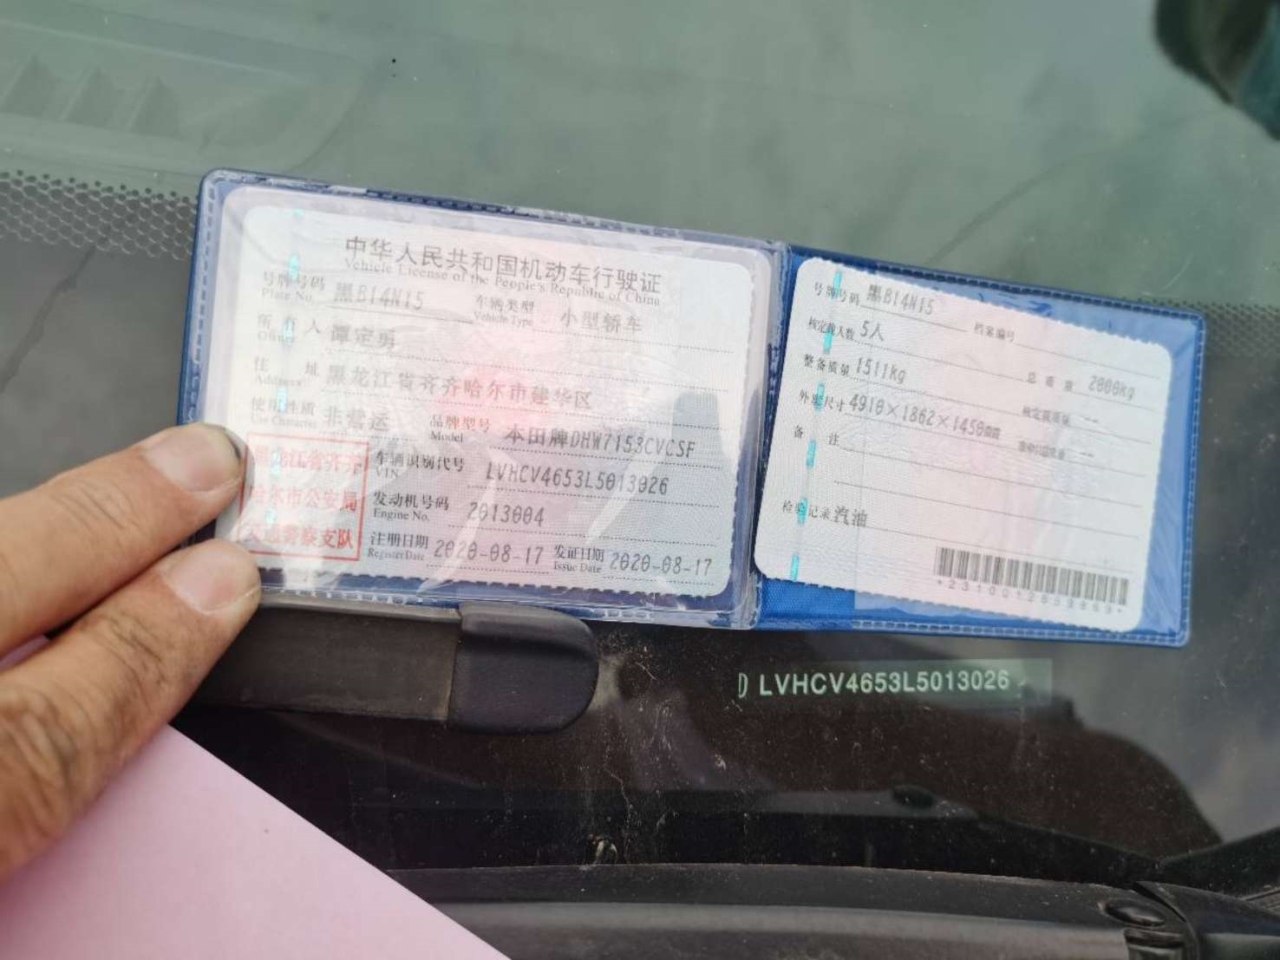 中华人民共和国机动车行驶证
Vehicle License of the People's Republic of China
号牌号码 黑B14N15 车辆类型 小型轿车
Plate No. Vehicle Type
所有人 谭定勇
Owner
住址 黑龙江省齐齐哈尔市建华区
Address
使用性质 非营运 品牌型号 本田牌DHW7153CVCSF
Use Character Model
黑龙江省齐齐
哈尔市公安局
交通警察支队
车辆识别代号 LVHCV4653L5013026
VIN
发动机号码 2013004
Engine No.
注册日期 2020-08-17 发证日期 2020-08-17
Register Date Issue Date
号牌号码 黑B14N15 档案编号
核定载人数 5人 总质量 2000kg
整备质量 1511kg 核定载质量 --
外廓尺寸 4910×1862×1450mm --
备注
检验记录 汽油
*2310012859863*
LVHCV4653L5013026